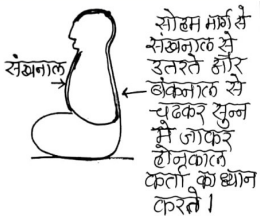 संखनाल
सोहम मार्ग से
संखनाल से
उतरते और
बंकनाल से
चढकर सुन्न
मे जाकर
होनकाल
कर्ता का ध्यान
करते।